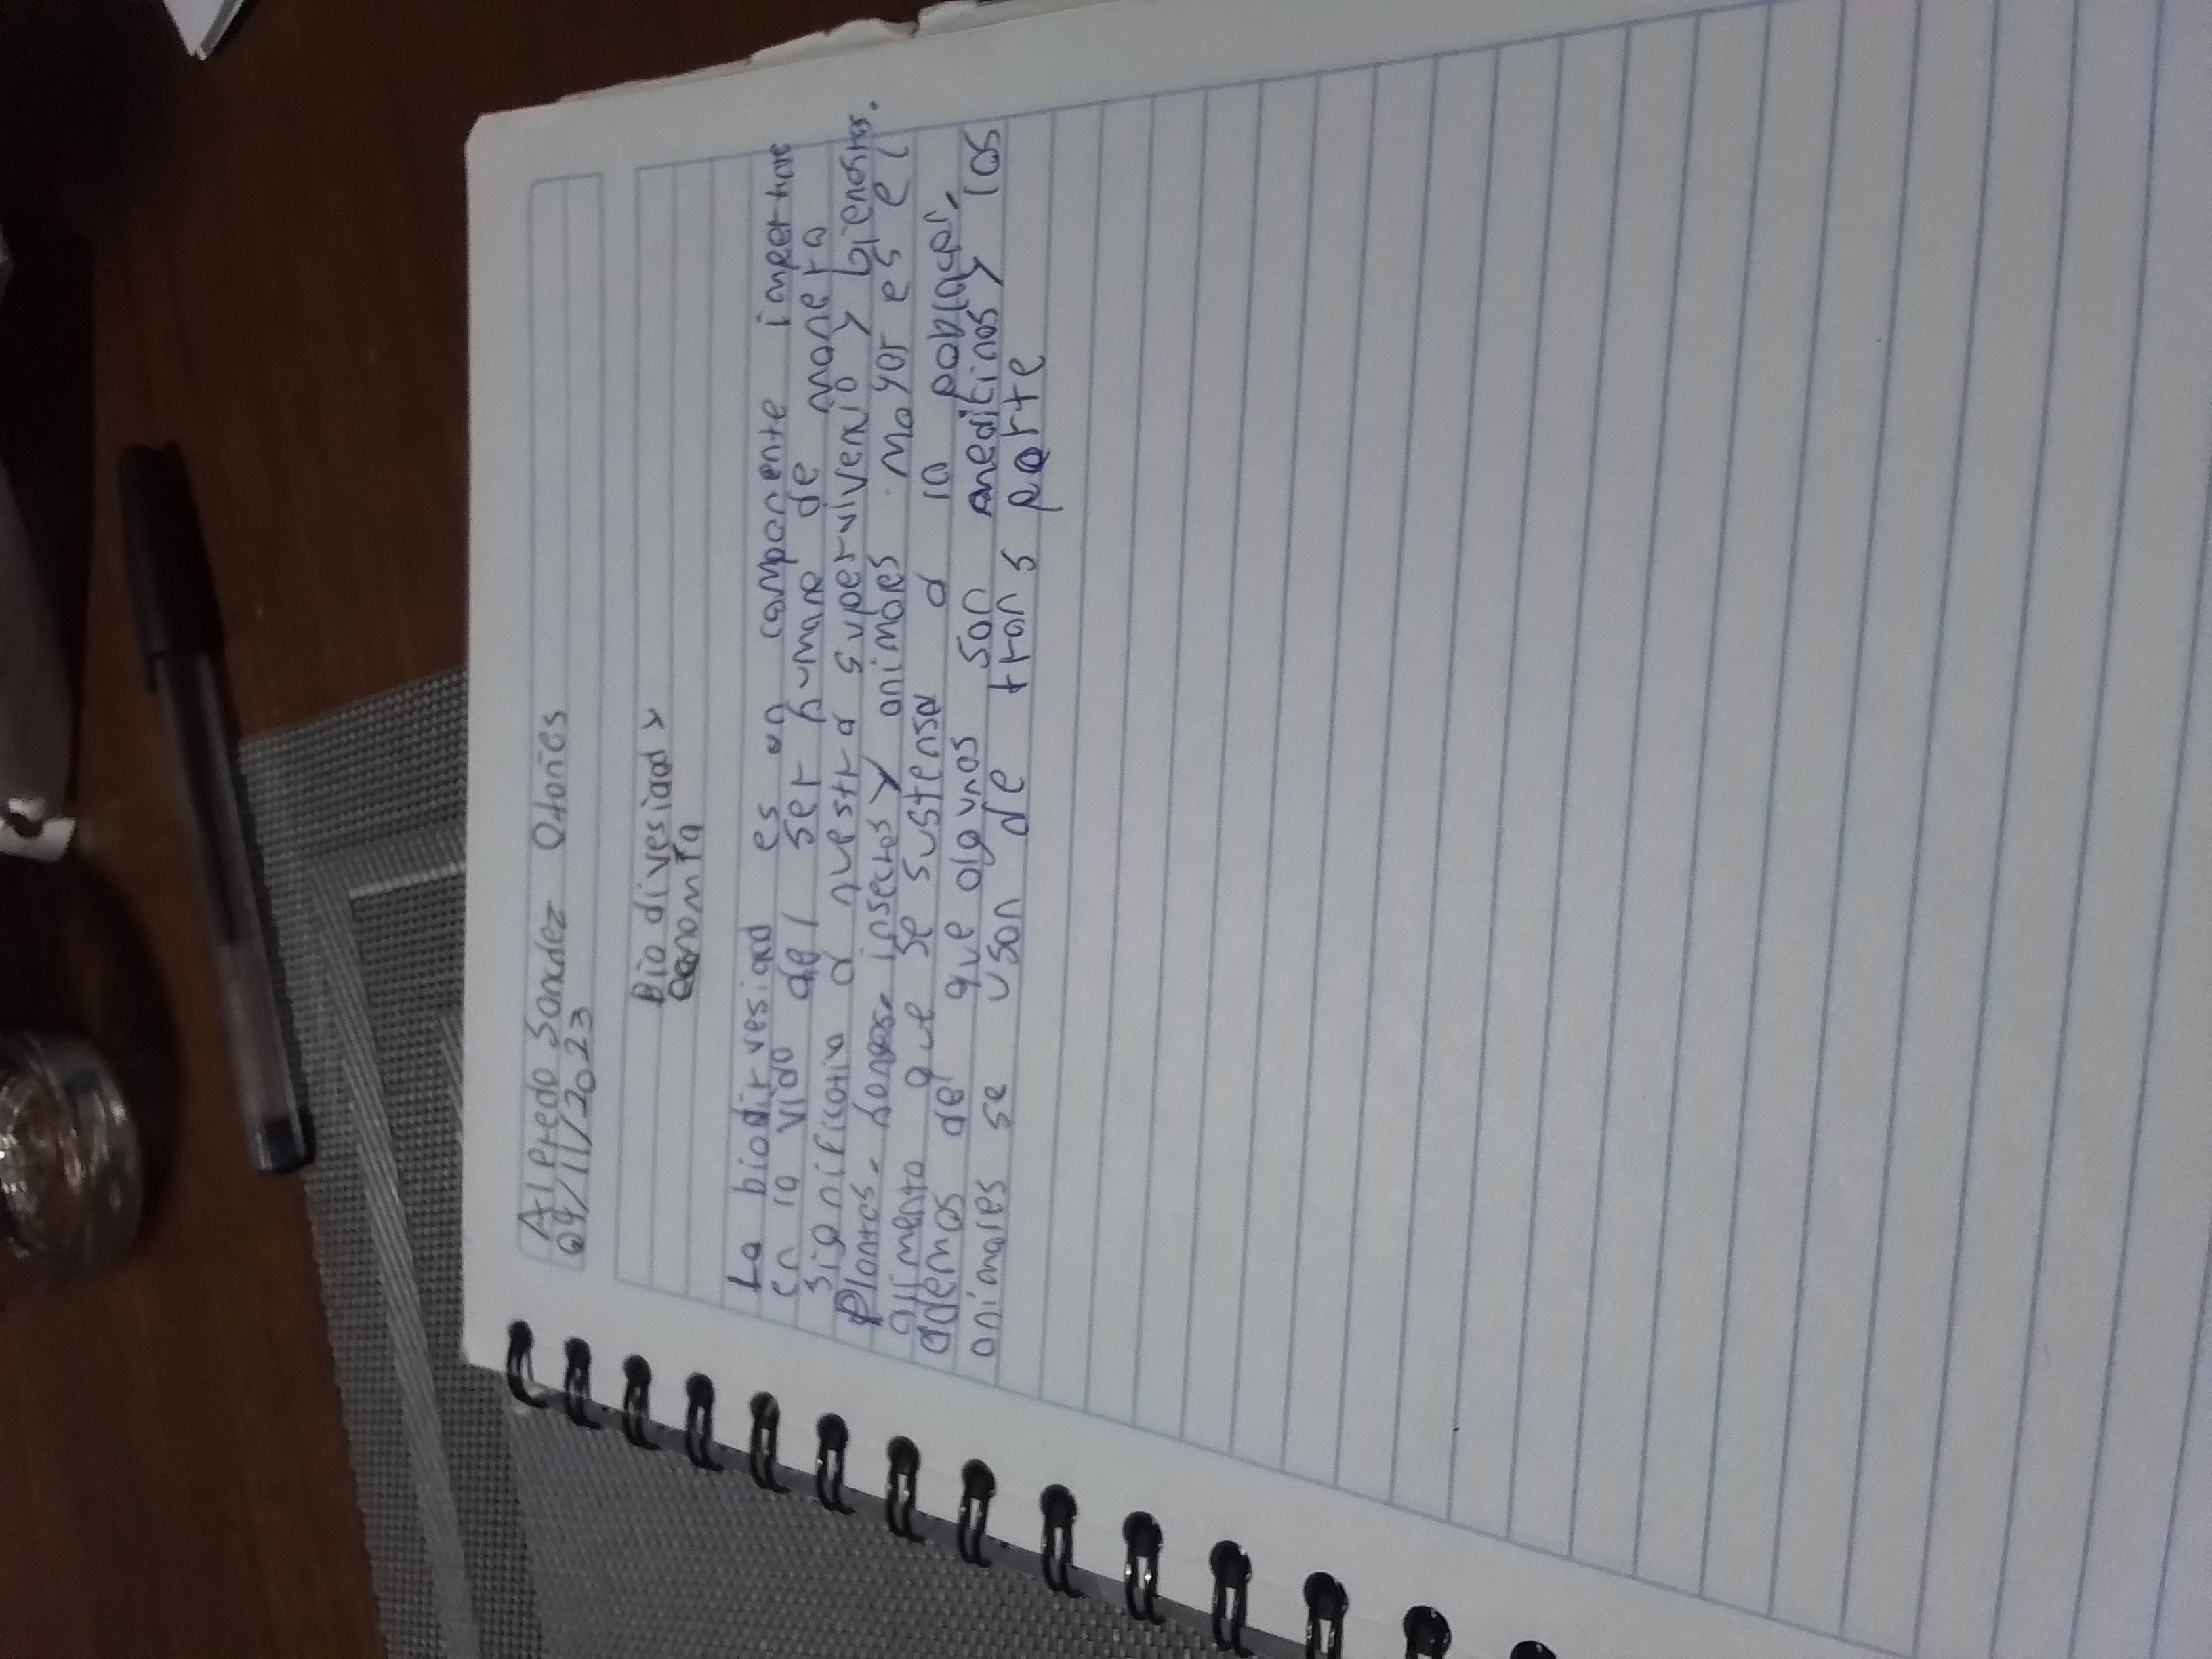 Alfredo Sanchez Otañes
04/11/2023
Bio divesidad y
economía
La biodirvesidad es un componente importante
en la vida del ser humano de manera
significatia a nuestra superviVencia y bienestar.
Plantas, hongos, insectos y animales mayor es el
alimento que se sustensa a la población,
ademas de que algunos son medicinas y los
animales se usan de trans porte